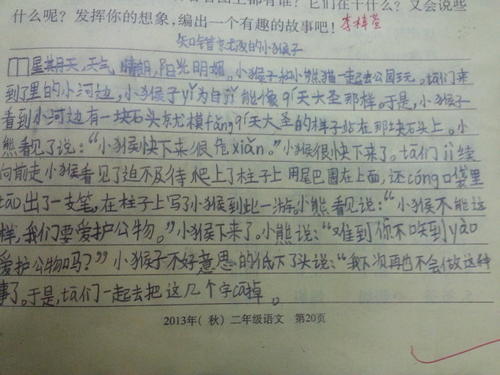 什么呢？发挥你的想象，编出一个有趣的故事吧！李梓萱
知错就改的小猴子
星期天，天气晴朗，阳光明媚。小猴子和小熊猫一起去公园玩。tā们来
到了里的小河边，小猴子yǐ为自jǐ能像qí天大圣那样。于是，小猴子
看到小河边有一块石头就模fǎng qí天大圣的样子站在那块石头上。小
熊看见了说：“小猴快下来很危xiǎn。”小猴很快下来了。tā们jì续
向前走小猴看见了迫不及待爬上了柱子上用尾巴围在上面，还cóng口袋里
tāo出了一支笔，在柱子上写了小猴到此一游。小熊看见说：“小猴不能这
样，我们要爱护公物。”小猴下来了。小熊说：“难到你不哚到yào
爱护公物吗？”小猴子不好意思的低下了头说：“我下次再也不会做这种
事了。于是，tā们一起去把这几个字cā掉。
2013年（秋）二年级语文 第20页